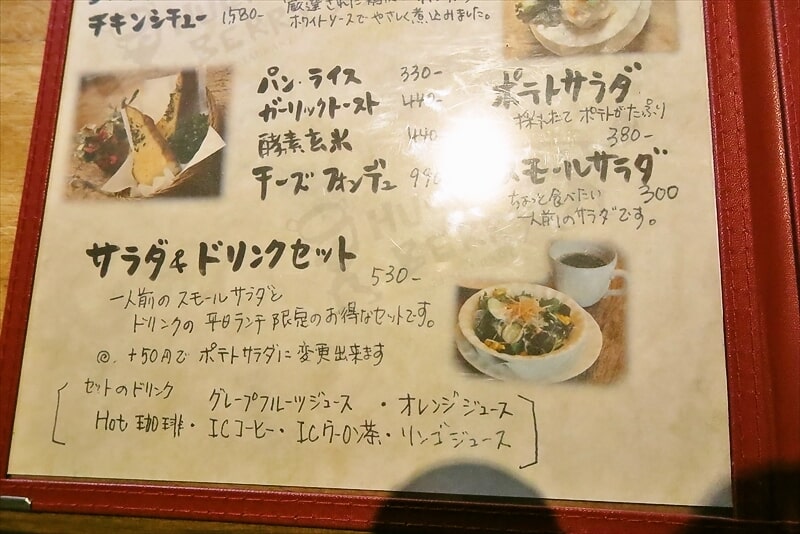 チキンシチュー 1580-
ホワイトソースでやさしく煮込みました。
パン・ライス 330-
ガーリックトースト 440-
酵素玄米 440
チーズフォンデュ 990
ポテトサラダ
採れたて ポテトがたっぷり
380-
スモールサラダ
ちょっと食べたい 300
一人前のサラダです。
サラダ&ドリンクセット 530-
一人前のスモールサラダと
ドリンクの平日ランチ限定のお得なセットです。
◎. +50円でポテトサラダに変更出来ます
セットのドリンク グレープフルーツジュース ・ オレンジジュース
Hot 珈琲・ICコーヒー・ICウーロン茶・リンゴジュース